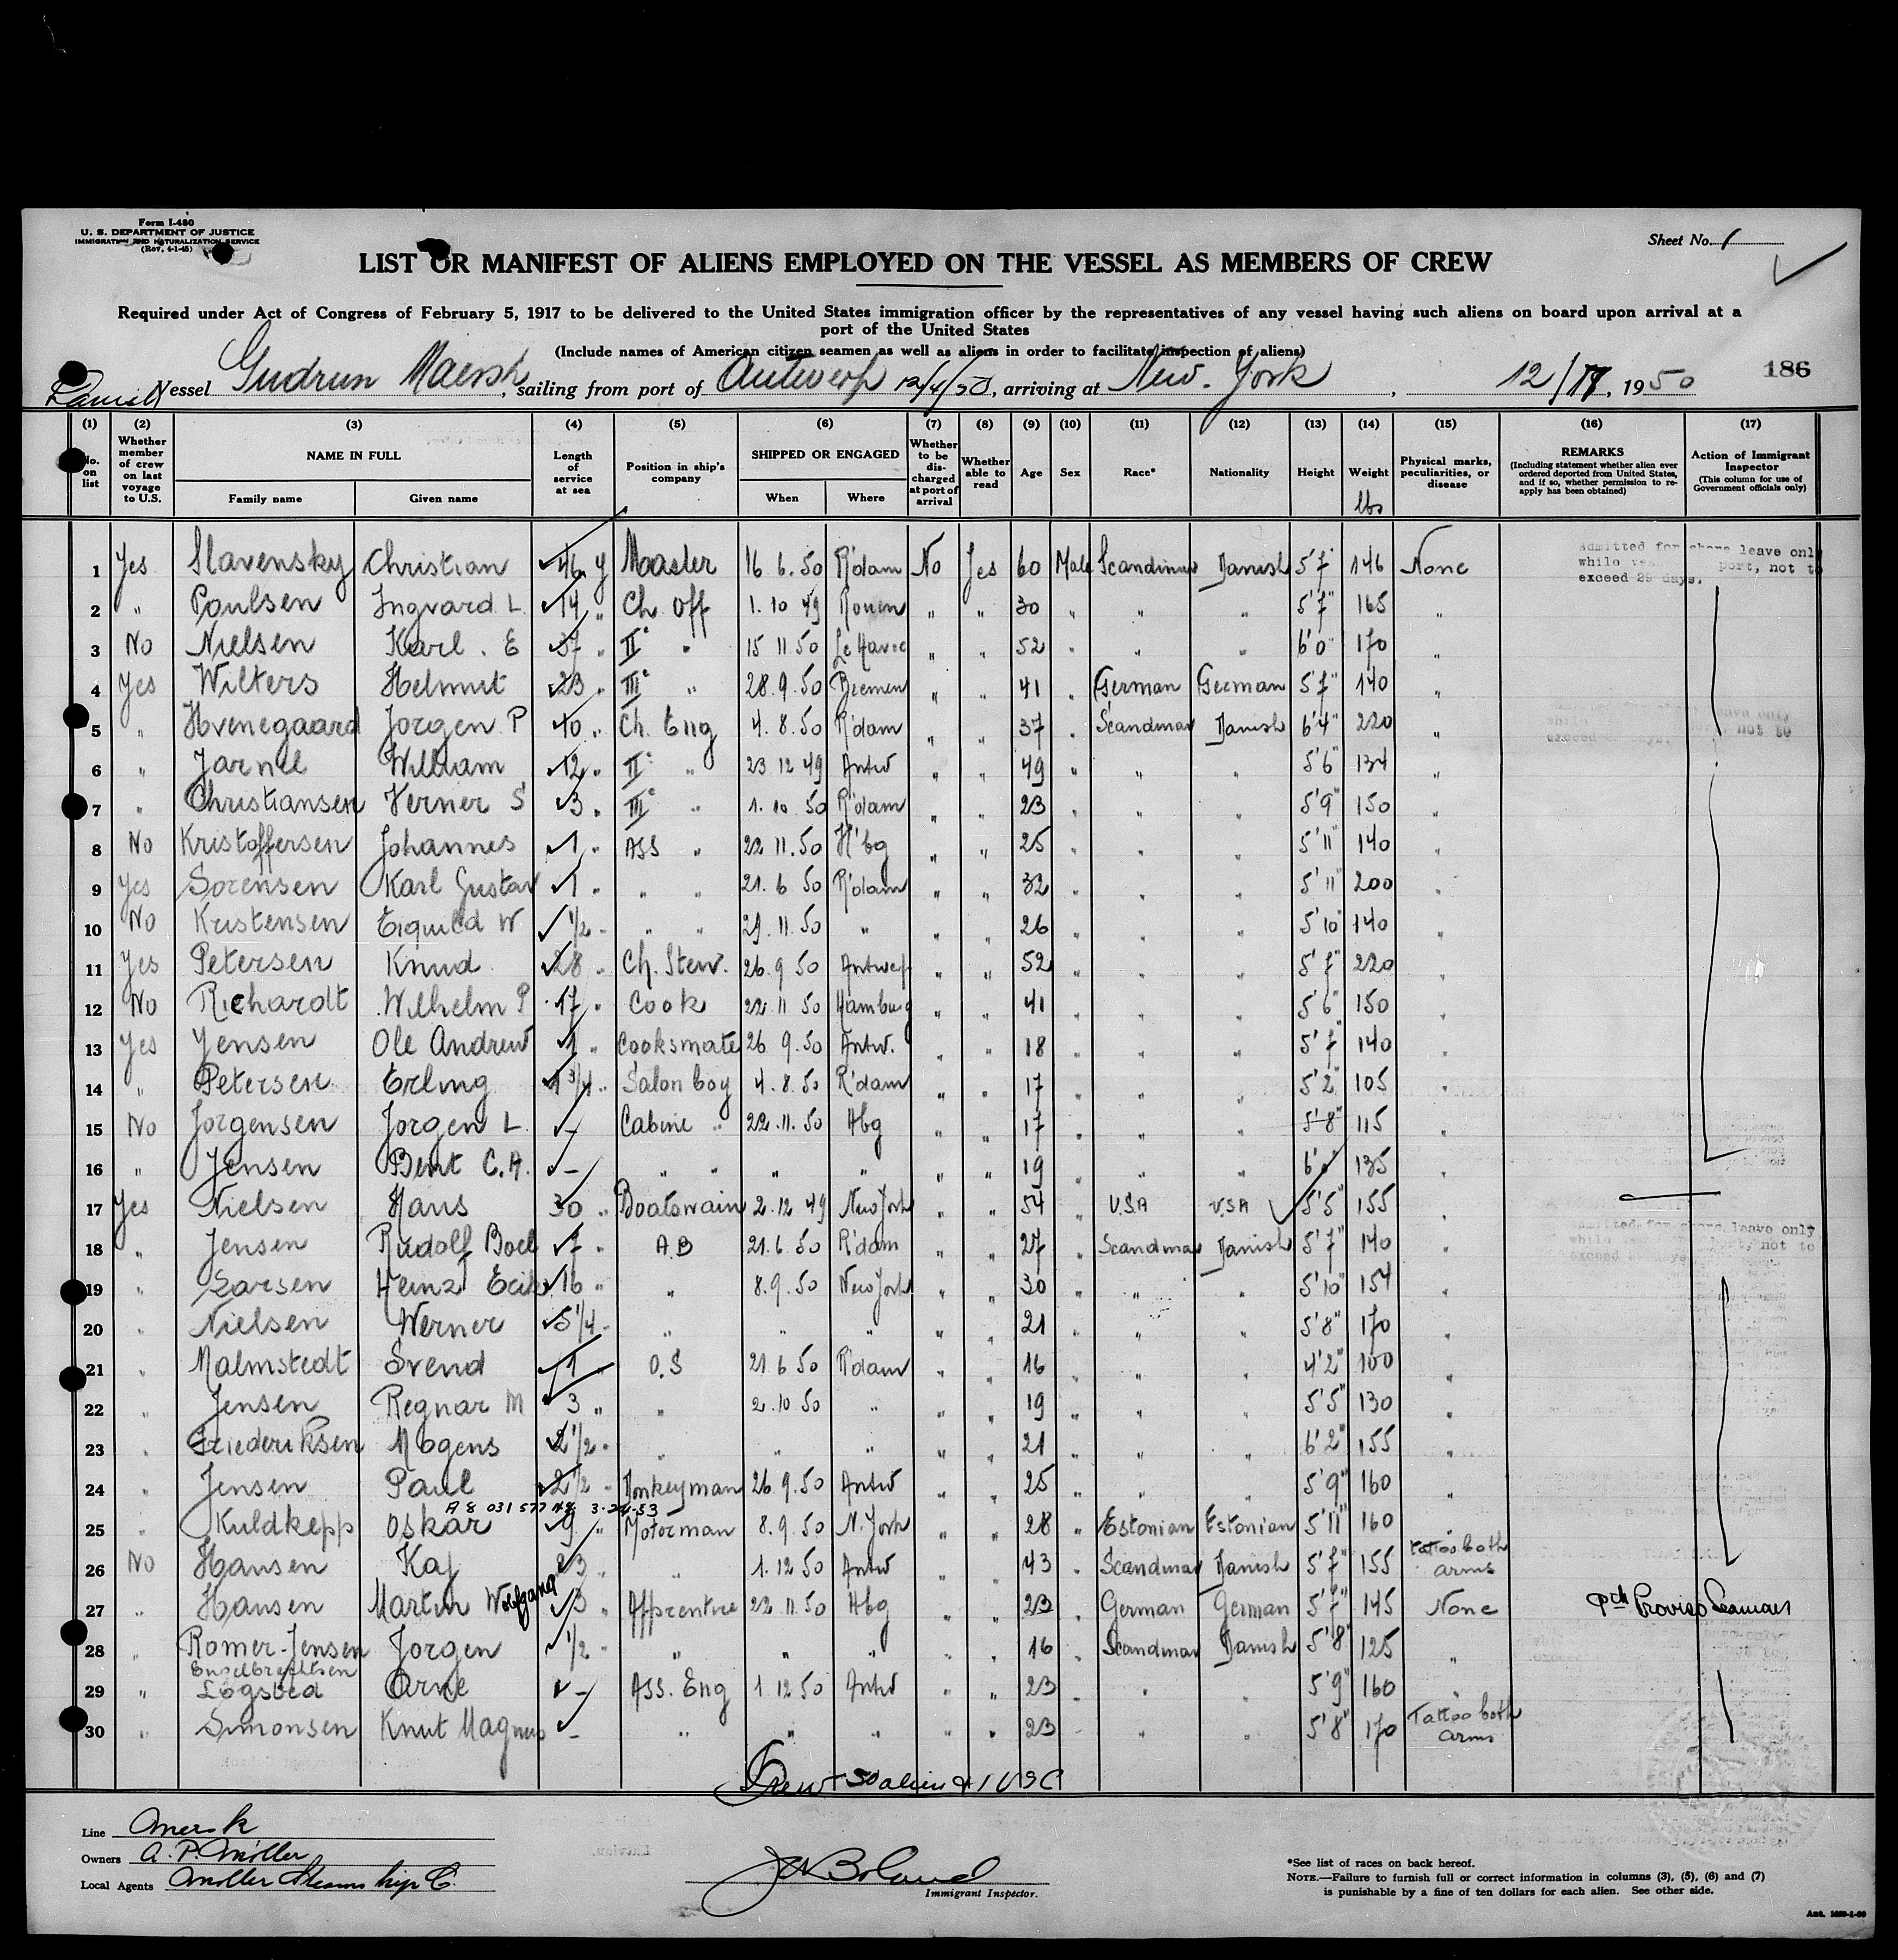 Form I-480
U. S. DEPARTMENT OF JUSTICE
IMMIGRATION AND NATURALIZATION SERVICE
(Rev. 4-1-45)
Sheet No. 1
LIST OR MANIFEST OF ALIENS EMPLOYED ON THE VESSEL AS MEMBERS OF CREW
Required under Act of Congress of February 5, 1917 to be delivered to the United States immigration officer by the representatives of any vessel having such aliens on board upon arrival at a
port of the United States
(Include names of American citizen seamen as well as aliens in order to facilitate inspection of aliens)
186
Danish Vessel Gudrun Maersk, sailing from port of Antwerp 12/4/50, arriving at New-York, 12/, 1950
(1) (2) (3) (4) (5) (6) (7) (8) (9) (10) (11) (12) (13) (14) (15) (16) (17)
No. on list
Whether member of crew on last voyage to U.S.
NAME IN FULL
Family name Given name
Length of service at sea
Position in ship's company
SHIPPED OR ENGAGED
When Where
Whether to be discharged at port of arrival
Whether able to read
Age
Sex
Race*
Nationality
Height
Weight lbs
Physical marks, peculiarities, or disease
REMARKS
(Including statement whether alien ever ordered deported from United States, and if so, whether permission to re-apply has been obtained)
Action of Immigrant Inspector
(This column for use of Government officials only)
Admitted for shore leave only
while ves port, not to
exceed 29 days.
1 Yes Slavensky Christian 46 y Master 16 6.50 R'dam No Yes 60 Male Scandinav Danish 5'7" 146 None
2 " Paulsen Ingvard L. 14 " Ch. Off 1. 10 49 Rouen " " 30 " " " 5'7" 165 "
3 No Nielsen Karl. E 37 " II° " 15 11.50 Le Havre " " 52 " " " 6'0" 170 "
4 Yes Wilters Helmut 23 " III° " 28.9.50 Bremen " " 41 " German German 5'7" 140 "
5 " Hvenegaard Jorgen P 40 " Ch. Eng 4.8.50 R'dam " " 37 " Scandinav Danish 6'4" 220 "
6 " Jarnel William 12 " II° " 23 12 49 Antw " " 49 " " " 5'6" 134 "
7 " Christiansen Verner S 3 " III° " 1. 10 50 R'dam " " 23 " " " 5'9" 150 "
8 No Kristoffersen Johannes 1 " ASS " 22 11.50 H'bg " " 25 " " " 5'11" 140 "
9 Yes Sorensen Karl Gustav 1 " " " 21.6 50 R'dam " " 32 " " " 5'11" 200 "
10 No Kristensen W 1/2 " " " 29.11.50 " " " 26 " " " 5'10" 140 "
11 Yes Petersen Knud 28 " Ch. Stew. 26.9 50 Antwerp " " 52 " " " 5'7" 220 "
12 No Richardt Wilhelm P 17 " Cook 22 11 50 Hamburg " " 41 " " " 5'6" 150 "
13 Yes Jensen Ole Andrew 1 " Cooksmate 26 9.50 Antw. " " 18 " " " 5'7" 140 "
14 " Petersen Erling 1 3/4 " Salon boy 4.8.50 R'dam " " 17 " " " 5'2" 105 "
15 No Jorgensen Jorgen L. - Cabine " 22.11.50 Hbg " " 17 " " " 5'8" 115 "
16 " Jensen Bent C.A. - " " " " " " 19 " " " 6'0" 135 "
17 Yes Nielsen Hans 30 " Boatswain 2.12 49 New York " " 54 " U.S.A U.S.A 5'5" 155 "
18 " Jensen Rudolf Boel 7 " A.B 21.6.50 R'dam " " 27 " Scandinav Danish 5'7" 140 "
Admitted for shore leave only
19 " Larsen Heinz Erik 16 " " 8.9.50 New York " " 30 " " " 5'10" 154 "
20 " Nielsen Werner 5 1/4 " " " " " " 21 " " " 5'8" 170 "
21 " Malmstedt Svend 1 " O.S 21 6 50 R'dam " " 16 " " " 4'2" 100 "
22 " Jensen Regnar M 3 " " 2.10 50 " " " 19 " " " 5'5" 130 "
23 " Friederiksen Mogens 2 1/2 " " " " " " 21 " " " 6'2" 155 "
24 " Jensen Paul 2 1/2 " Donkeyman 26.9.50 Antw " " 25 " " " 5'9" 160 "
A 8 031 577 3-24-53
25 " Kuldkepp Oskar 9 " Motorman 8.9.50 N. York " " 28 " Estonian Estonian 5'11" 160 "
26 No Hansen Kaj 23 " " 1.12 50 Antw " " 43 " Scandinav Danish 5'7" 155 Tattoo both arms
27 " Hansen Martin Wolfgang 3 " Apprentice 22.11.50 Hbg " " 23 " German German 5'7" 145 None
28 " Romer-Jensen Jorgen 1/2 " " " " " " 16 " Scandinav Danish 5'8" 125 "
Engelbrechtsen
29 " Logsted Arne - Ass. Eng 1 12 50 Antw " " 23 " " " 5'9" 160 "
30 " Simonsen Knut Magnus - " " " " " 23 " " " 5'8" 170 Tattoo both arms
Crew 50 alien & 1 USC
Line Maersk
Owners A. P. Möller
Local Agents Moller Steamship C.
J Boland
Immigrant Inspector.
*See list of races on back hereof.
NOTE.—Failure to furnish full or correct information in columns (3), (5), (6) and (7)
is punishable by a fine of ten dollars for each alien. See other side.